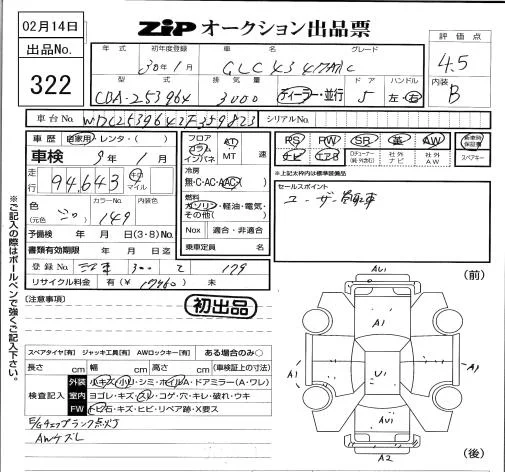 02月14日
ZiP オークション出品票
出品No.
322
評価点
4.5
内装
B
年式 初年度登録 車名 グレード
30年1月 GLC 43 4MATIC
型式 排気量 ドア ハンドル
CDA-253964 3000 ディーラー・並行 5 左・右
車台No. WDC2539642F359823 シリアルNo.
車歴 自家用・レンタ・( )
車検 9年 1月
走行 94,643 キロ マイル
色 (元色 ) カラーNo. 149 内装色
予備検 年 月 日(3・8)No.
書類有効期限 年 月 日迄
登録No. 300 179
リサイクル料金 有(¥ 17960) 無
フロア コラム インパネ AT MT 速
冷房 無・C・AC・AAC・
燃料 ガソリン・軽油・電気・その他( )
Nox 適合・非適合
乗車定員 名
PS PW SR 革 AW
ナビ エアB Dチューナー (純・外含む) 社外ナビ 社外AW
新車時保証書
スペアキー
*上記太枠内は標準装備品
セールスポイント
ユーザー買取車
※ご記入の際はボールペンで強くご記入下さい。
[注意事項]
初出品
スペアタイヤ[有] ジャッキ工具[有] AWロックキー[有] ある場合のみ○
長さ cm 幅 cm 高さ cm (車検証上の寸法)
検査記入
外装 小キズ・小リ・シミ・ホイルA・ドアミラー(A・ワレ)
室内 ヨゴレ・キズ・スレ・コゲ・穴・キレ・破れ・ウキ
FW トビ石・キズ・ヒビ・リペア跡・X要ス
E/Gチェックランプ点灯
AWケズレ
(前)
AU1
A1
A1
U1
A1
AU1
A2
(後)